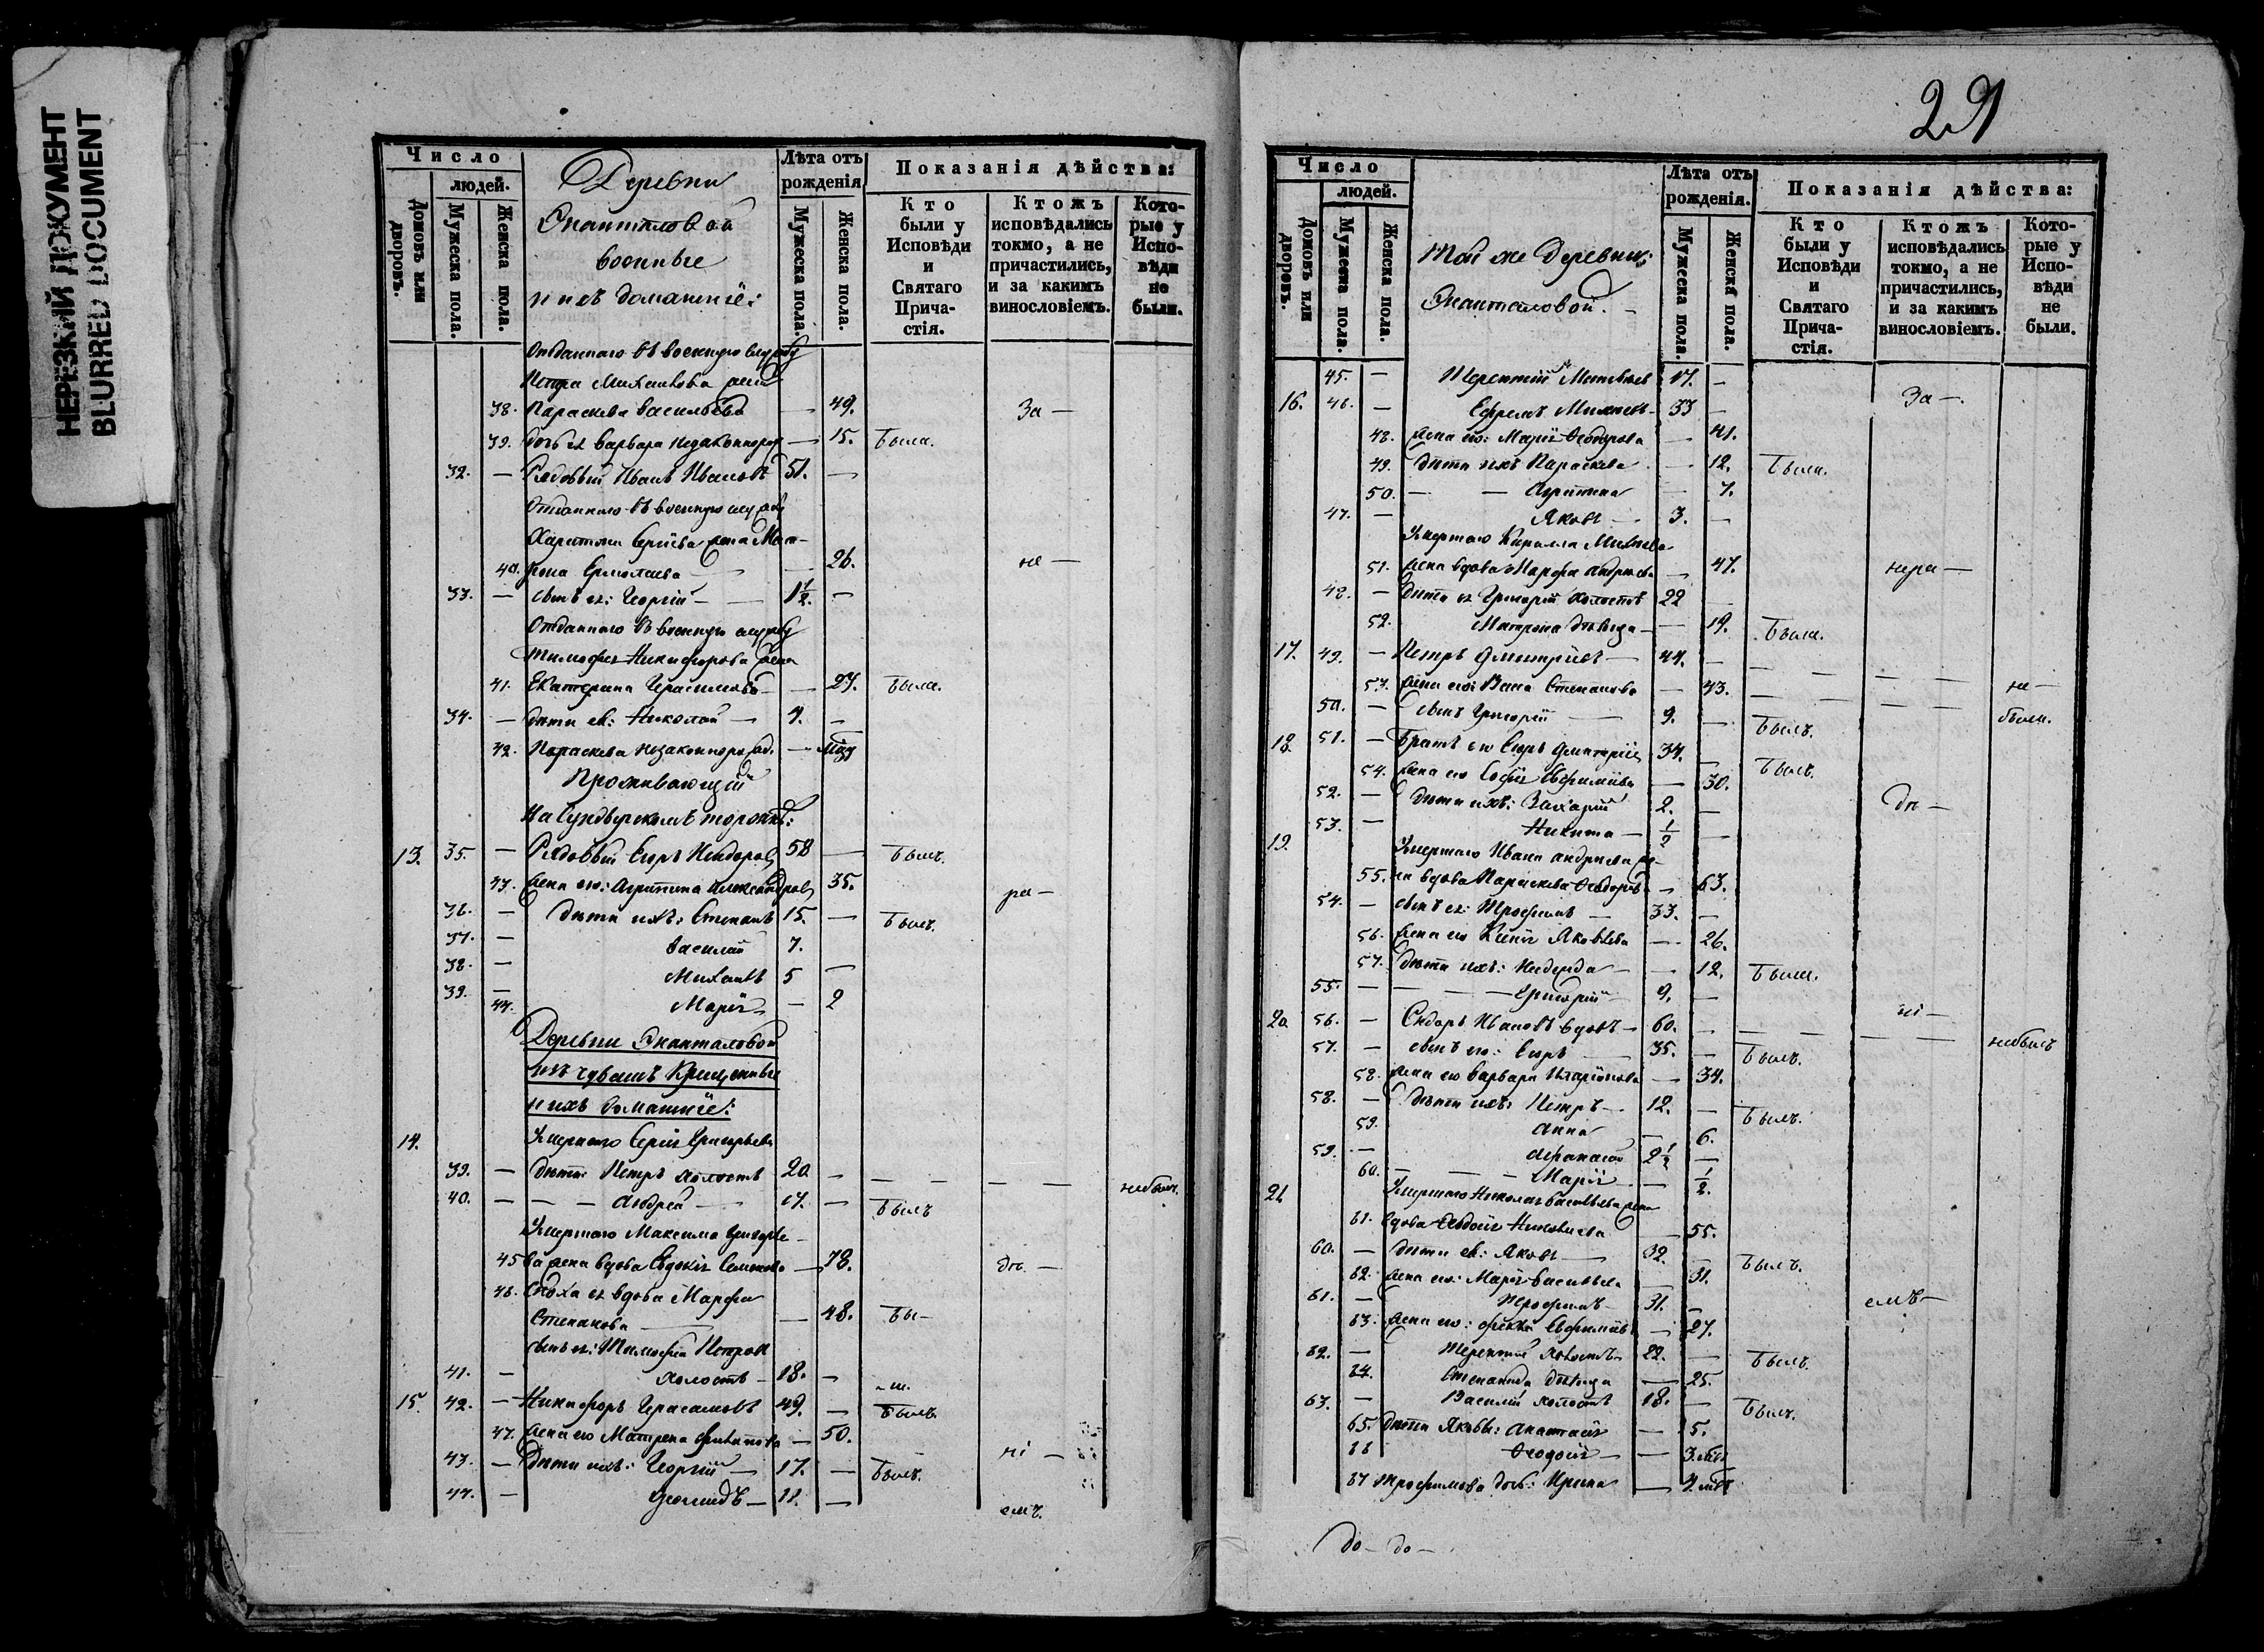 НЕРЕЗКИЙ ДОКУМЕНТ
BLURRED DOCUMENT
Число
людей.
Домовъ или дворовъ.
Мужеска пола.
Женска пола.
Деревни
военные
и ихъ домашніе:
Лѣта отъ рожденія
Мужеска пола.
Женска пола.
Показанія дѣйства:
Кто были у Исповѣди и Святаго Причастія.
Ктожъ исповѣдались токмо, а не причастились, и за какимъ винословіемъ.
Которые у Исповѣди не были.
Отданнаго въ военную службу
Петра Михайлова жена
38. Параскева Васильева — 49. За —
39. дочь ея Варвара незаконнорож — 15. Была.
32. — Рядовый Иванъ Ивановъ 51. —
Отданнаго въ военную службу
Харитона Сергіева жена Мат-
40. рона Ермолаева — — 26. не —
33. — сынъ ея: Георгій — 1 1/2. —
Отданнаго въ военную службу
Тимофея Никифорова жена
41. Екатерина Герасимова — — 27. Была.
34. — дѣти ея: Николай — 4. —
42. Параскева незаконнорожд. —
Проживающій
13. 35. — Рядовый Егоръ 58 — Былъ.
43. жена его: Агрипина Александров 35. ра —
36. — Дѣти ихъ: Степанъ 15. — Былъ.
37. — Василій 7.
38. — Михаилъ 5 —
39. —
44. Марія — 2
Деревни
изъ чувашъ Крещенные
и ихъ домашніе:
14. Умершаго Сергія Григорьева
39. — дѣти: Петръ холостъ 20 — — — — — небылъ.
40. — — — Андрей — 17. — Былъ
Умершаго Максима Григорье-
45 ва жена вдова Евдокія Семенова — 78. дѣ —
46. Сноха ея вдова Марфа
Степанова — — 48. Бы —
сынъ ея: Тимофей Петровъ
41. — холостъ — 18. — ли.
15. 42. — Никифоръ Герасимовъ 49. — Былъ.
47. жена его Матрена Филипова — 50. ні —
43. — Дѣти ихъ: Георгій — 17. — Былъ.
44. — — 11. — емъ.
29
Число
людей.
Домовъ или дворовъ.
Мужеска пола.
Женска пола.
Той же Деревни:
Лѣта отъ рожденія.
Мужеска пола.
Женска пола.
Показанія дѣйства:
Кто были у Исповѣди и Святаго Причастія.
Ктожъ исповѣдались токмо, а не причастились, и за какимъ винословіемъ.
Которые у Исповѣди не были.
45. — Терентій 17. —
16. 46. — Ефремъ 33 — За —
48. жена его: Марія Феодорова — 41.
49. Дѣти ихъ Параскева — 12. Были.
50. — — Агрипина — 7.
47. — Яковъ — 3. —
Умершаго Кирилла
51. жена вдова Марфа Андреева — 47. нера —
48. — Дѣти ея Григорій холостъ 22 —
52. Матрона дѣвица — — 19. Была.
17. 49. — Петръ Дмитріевъ — 44. — — — — — не —
53. жена его: Васса Степанова — 43. — — — были.
50. — сынъ Григорій — 9. — Былъ.
18. 51. — Братъ его Егоръ Дмитріев 34. — Былъ.
54. жена его Софія Евфиміева — 30.
52. — дѣти ихъ: Захарій 2. — дѣ —
53. — Никита — 1/2 —
19. Умершаго Ивана Андреева же-
55. на вдова Параскева Феодоров — 63.
54. — сынъ ея: Трофимъ — 33. —
56. жена его Ксенія Яковлева — 26.
57. Дѣти ихъ: Надежда — — 12. Были.
55. — — — Григорій — 9. — ні —
20. 56. — Сидоръ Ивановъ вдовъ — 60. — — — — — небылъ
57. — сынъ его: Егоръ — 35. — Былъ.
58. жена его Варвара Иларіонова — 34.
58. — дѣти ихъ: Петръ — 12. — Былъ.
59. Анна — 6.
59. — Афанасій 2 1/2 —
60. — — Марія — 1/2.
21 Умершаго Николая Васильева жена
61. вдова Евдокія — 55.
60. — дѣти ея: Яковъ — 32. — Былъ.
62. жена его: Марія Васильева — 31.
61. — Трофимъ — 31. — емъ —
63. жена его: Фекла Евфиміева — 27.
62. — Терентій холостъ 22. — Былъ.
64. Степанида дѣвица — 25.
63. — Василій холостъ 18. — Былъ.
65. Дѣти Якова: Анастасія — 5.
66 Феодосія — — 3. мѣс
67 Трофимова дочь: Ирина — 4. мѣс
до — до —